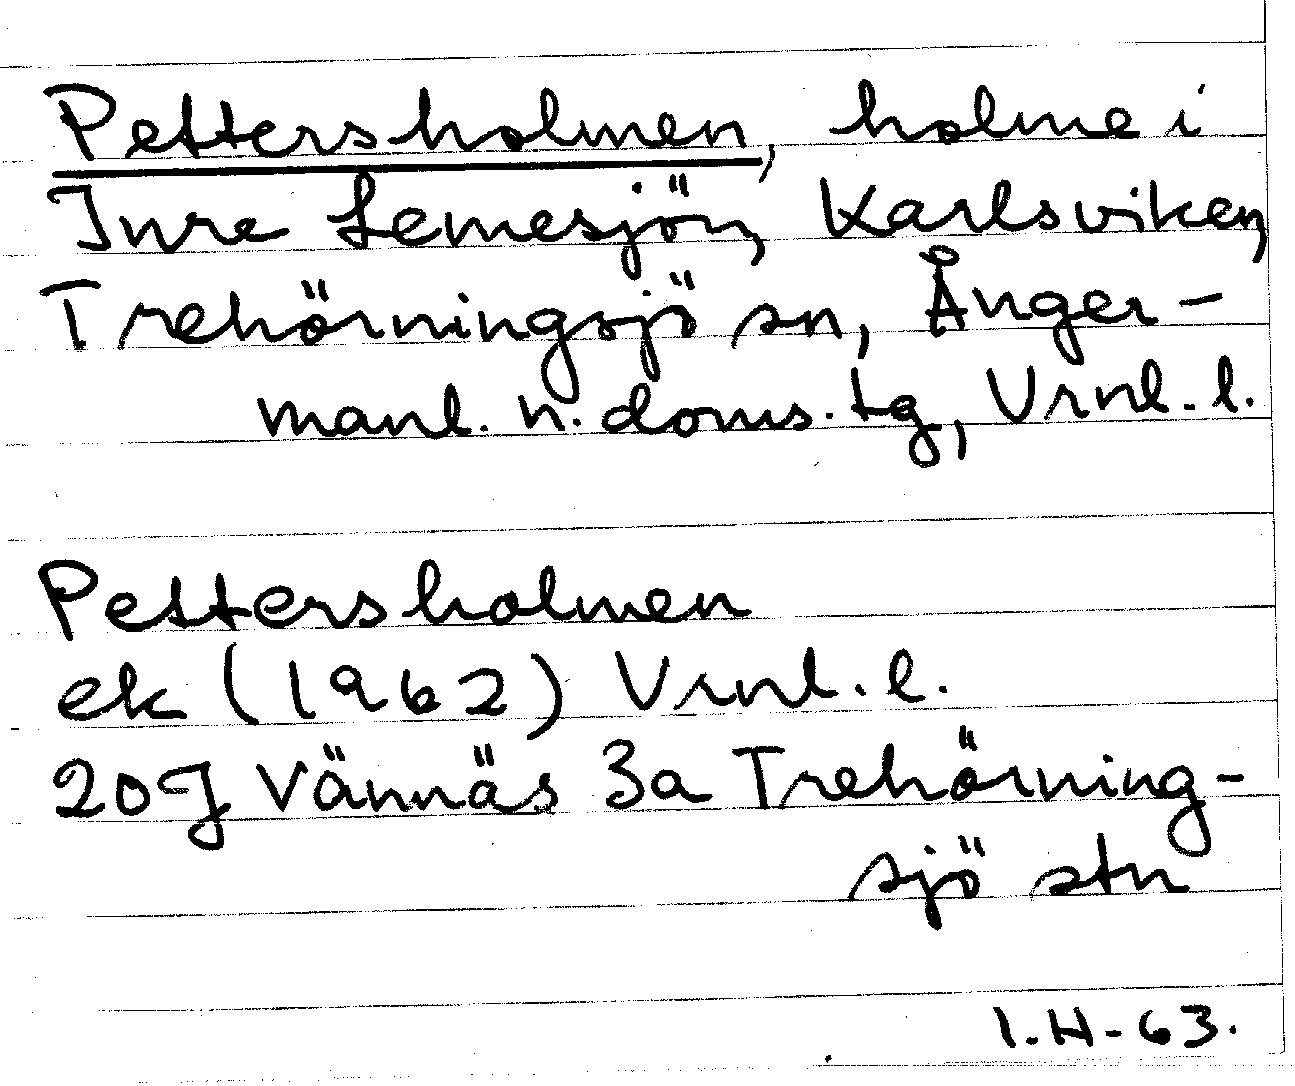 Pettersholmen, holme i
Inre Lemesjön, Karlsviken,
Trehörningsjö sn, Ånger-
manl. n. doms. tg, Vrnl. l.
Pettersholmen
ek (1962) Vrnl. l.
20 J Vännäs 3a Trehörning-
sjö stn
I.H-63.